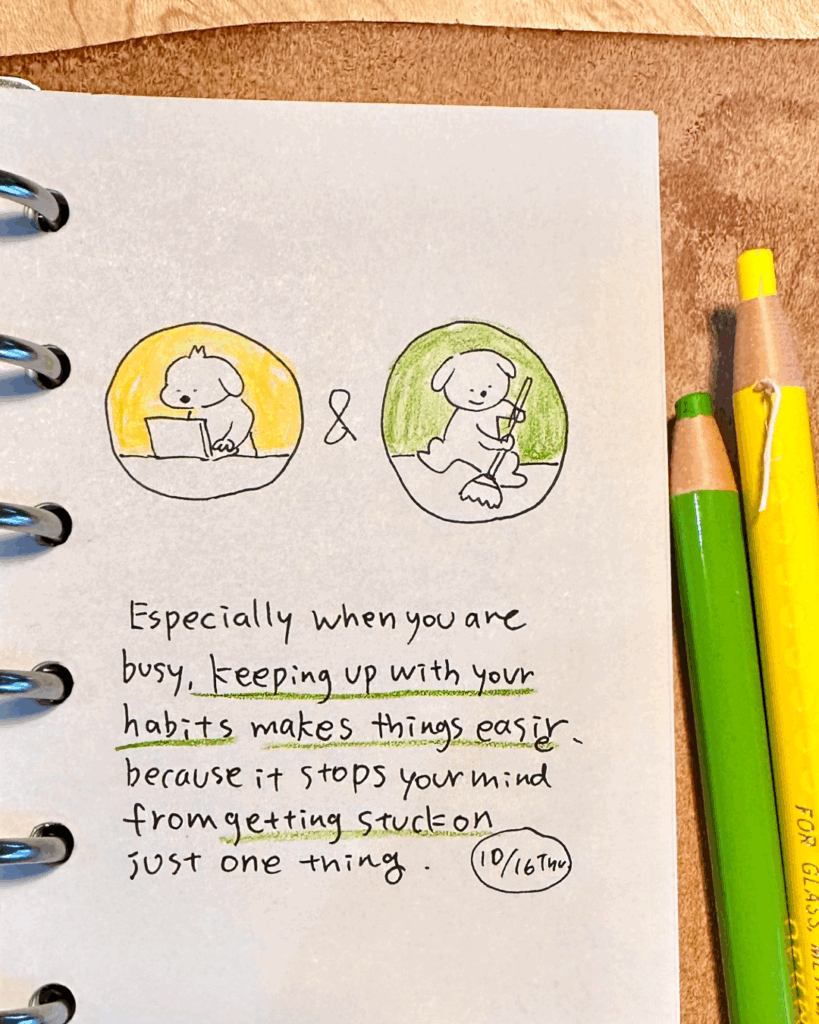 &
Especially when you are
busy, keeping up with your
habits makes things easier、
because it stops your mind
from getting stuck on
just one thing.
10/16 Thu.
FOR GLASS, META